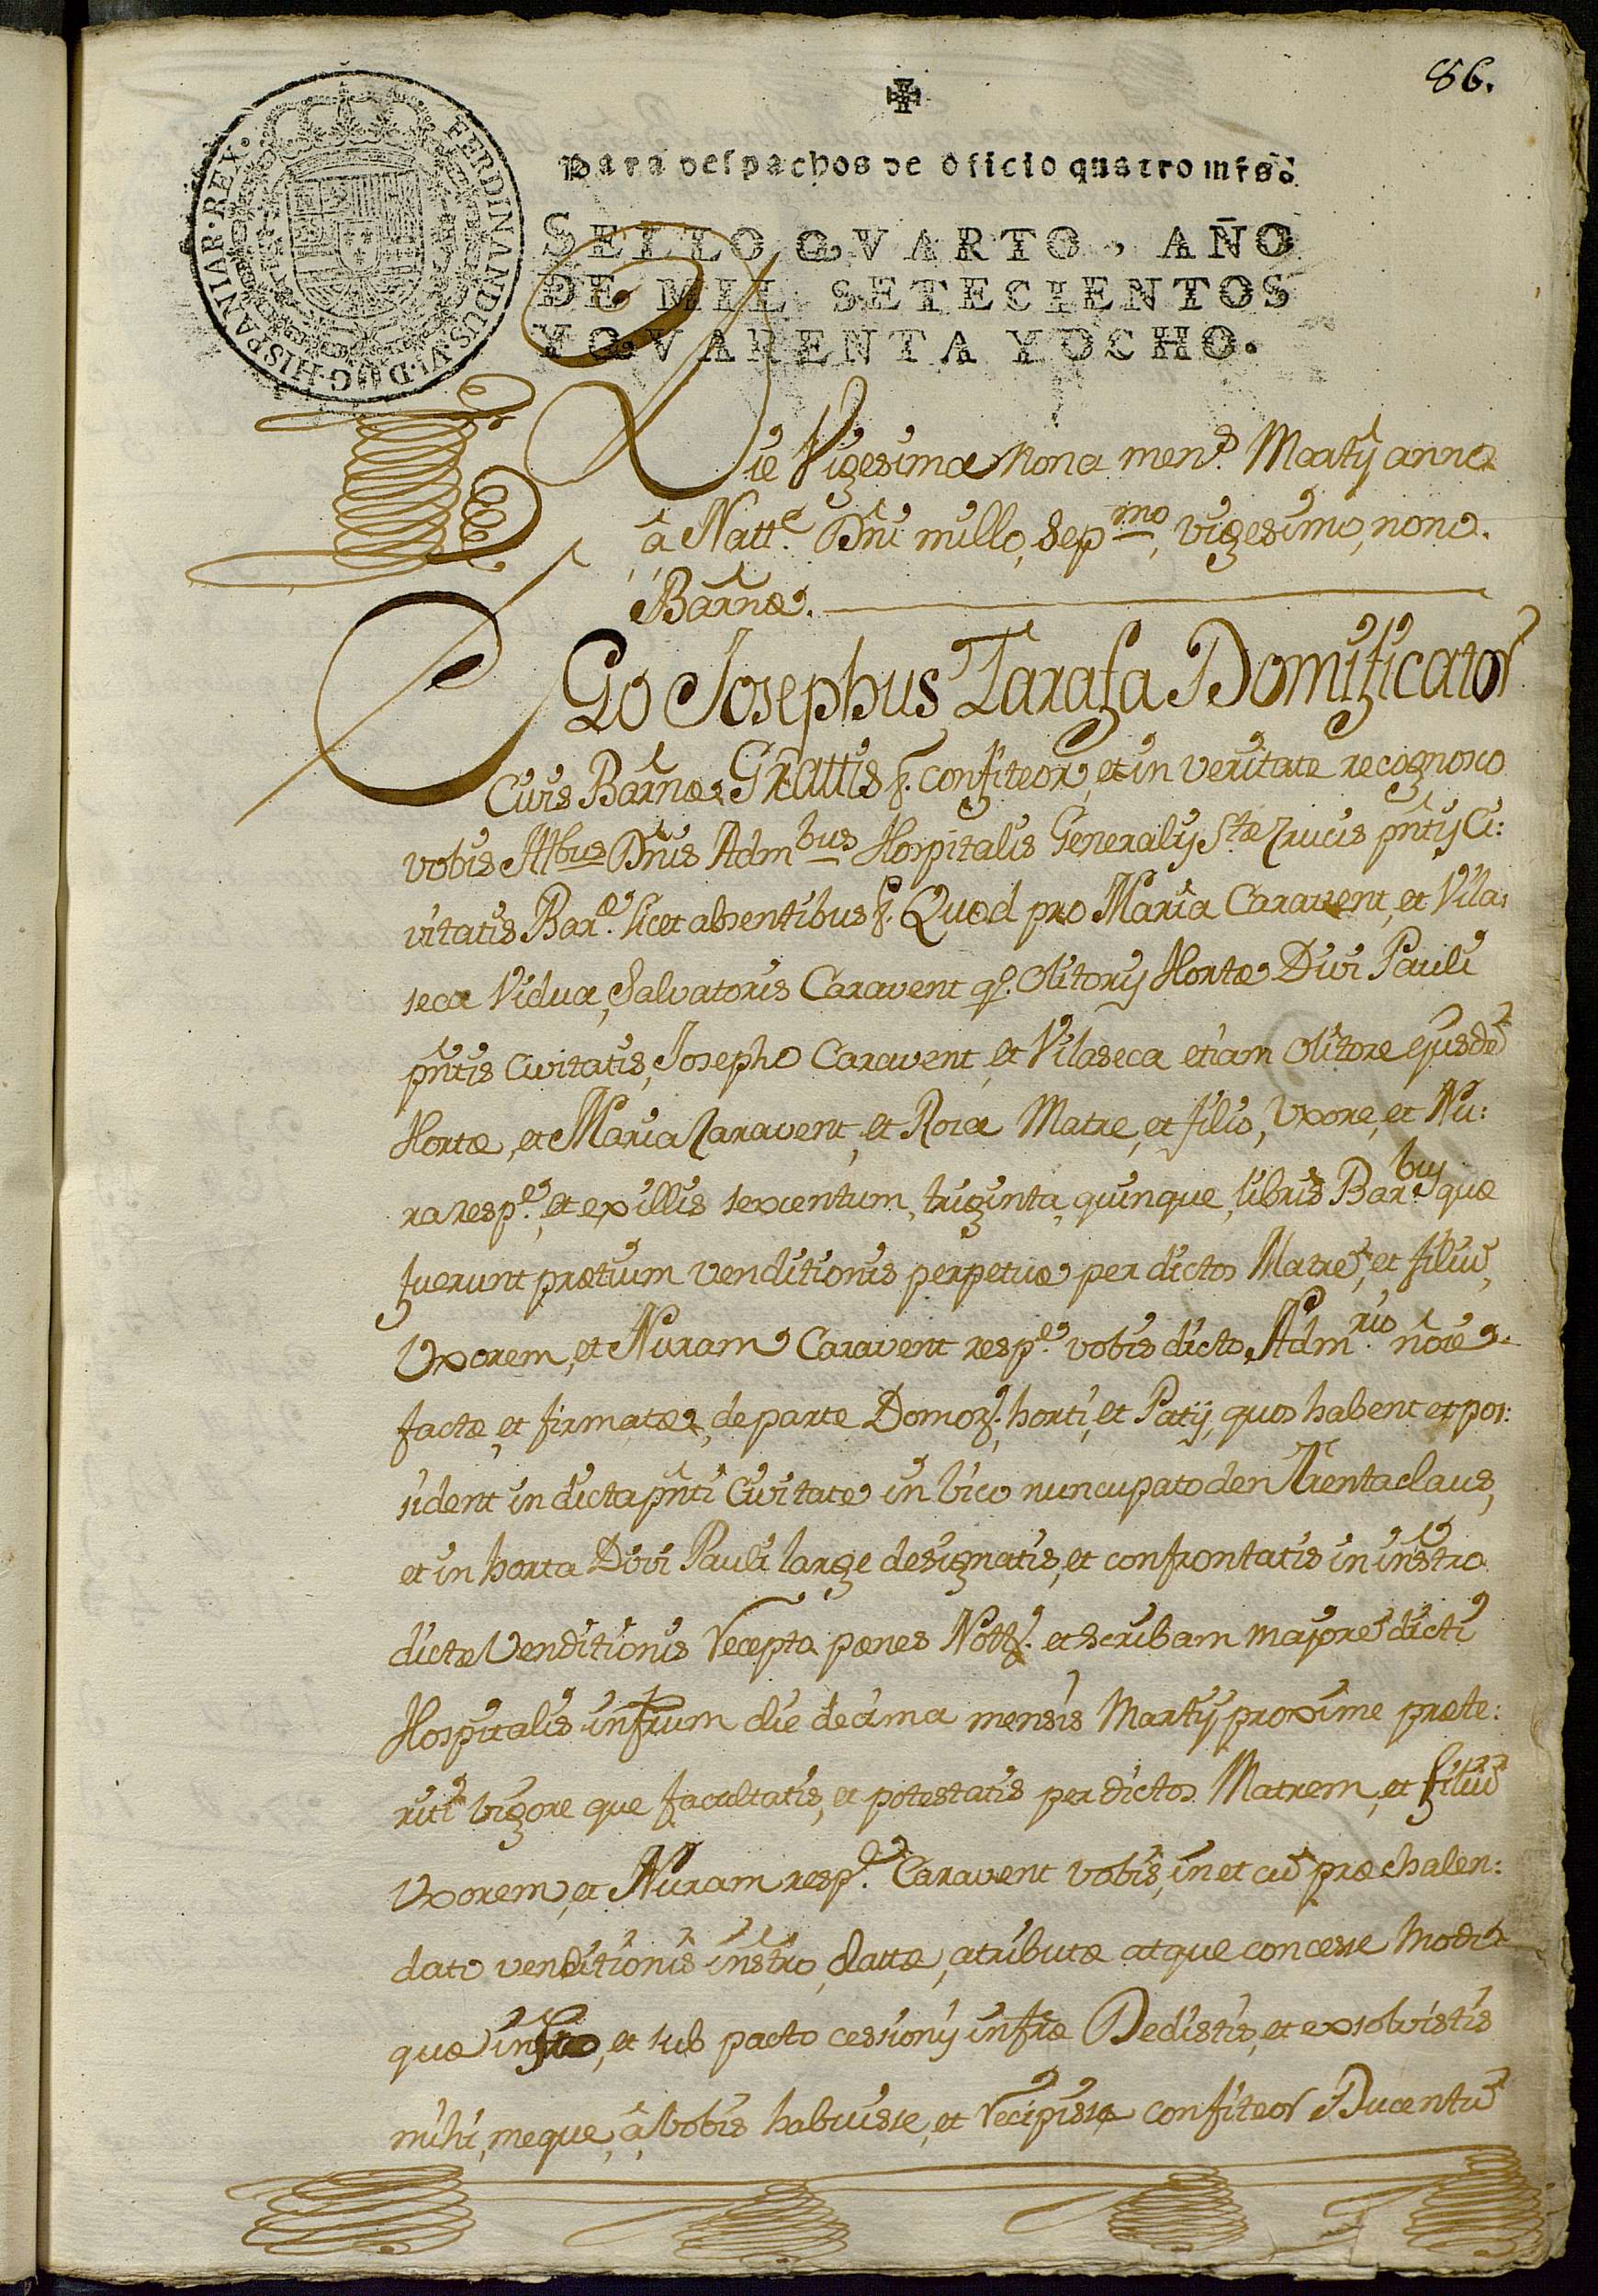 86.
FERDINANDUS·VI·D·G·HISPANIAR·REX·
Para despachos de oficio quatro mrs.
SELLO QVARTO, AÑO
DE MIL SETECIENTOS
Y QVARENTA Y OCHO.
Die Vigesima Nona mens. Martÿ anno
â Natt.e Dñi millo, Sepmo, vigesimo, nono.
Barñæ.
EGo Josephus Tarafa Domificator
Civis Barñæ Grattis &. confiteor, et in veritate recognosco
vobis Attbus Dñis Admbus Hospitalis Generalis Stæ Crucis pñtis Ci:
vitatis Bar.e licet absentibus &. Quod pro Maria Caravent, et Vila:
seca Vidua, Salvatoris Caravent q.o Olitoris Hortæ Divi Pauli
pñtis Civitatis, Josepho Caravent, et Vilaseca etiam Olitore ejusdẽ
Hortæ, et Maria Caravent, et Roia Matre, et filio, Uxore, et Nu:
ra resp.e, et ex illis sexcentum, triginta, quinque, libris Bar.bus quæ
fuerunt prætium venditionis perpetuæ per dictos Matrẽ, et filiũ,
Uxorem, et Nuram Caravent resp.e vobis dicto Adm.rio noïe
factæ, et firmatæ, de parte Domorz. horti, et Patÿ, quos habent et pos:
sident in dicta pñti Civitate in Vico nuncupato den Trentaclaus,
et in horta Divi Pauli large designatis, et confrontatis in instro
dictæ Venditionis recepto pænes Nott. et Scribam majorẽ dicti
Hospitalis infrum die decima mensis Martÿ proxime præte:
riti vigore que facultatis, et potestatis per dictos Matrem, et filiũ
Uxorem, et Nuram resp.e Caravent vobis, in et cũ præ chalen:
dato venditionis instro, dattæ, atributæ atque concesse Modo
quæ infro, et sub pacto cessionis infræ Dedistis, et exsolvistis
mihi, meque, â vobis habuisse, et recipisse confiteor Ducentũ